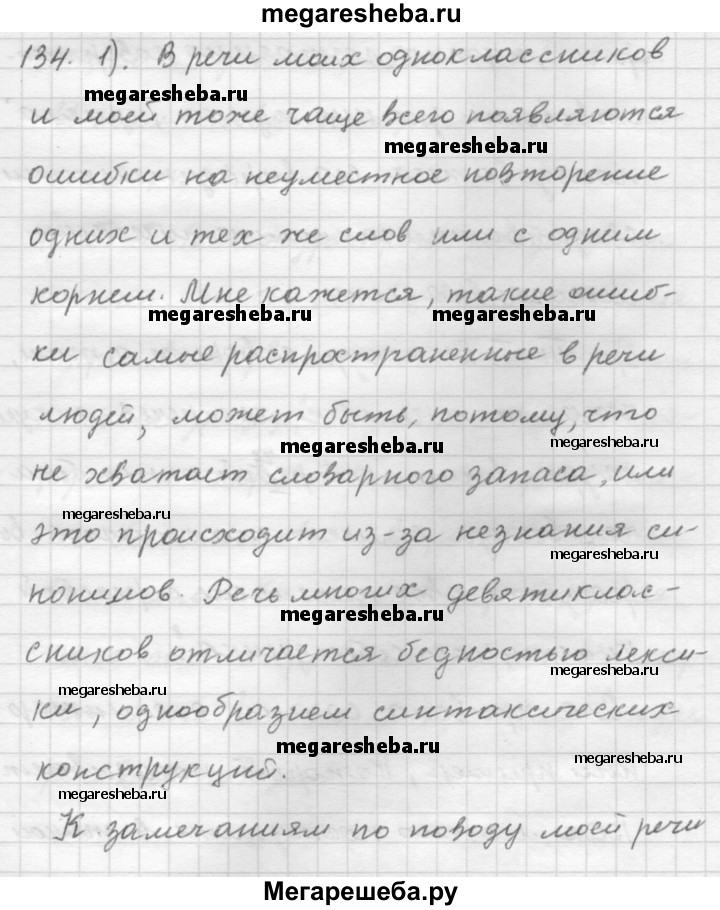 megaresheba.ru
134. 1). В речи моих одноклассников
megaresheba.ru
и моей тоже чаще всего появляются
megaresheba.ru
ошибки на неуместное повторение
одних и тех же слов или с одним
корнем. Мне кажется, такие ошиб-
megaresheba.ru megaresheba.ru
ки самые распространенные в речи
людей, может быть, потому, что
megaresheba.ru megaresheba.ru
не хватает словарного запаса, или
megaresheba.ru
это происходит из-за незнания си-
megaresheba.ru
нонимов. Речь многих девятиклас-
megaresheba.ru
сников отличается бедностью лекси-
megaresheba.ru megaresheba.ru
ки, однообразием синтаксических
megaresheba.ru megaresheba.ru
конструкций.
megaresheba.ru
К замечаниям по поводу моей речи
Мегарешеба.ру